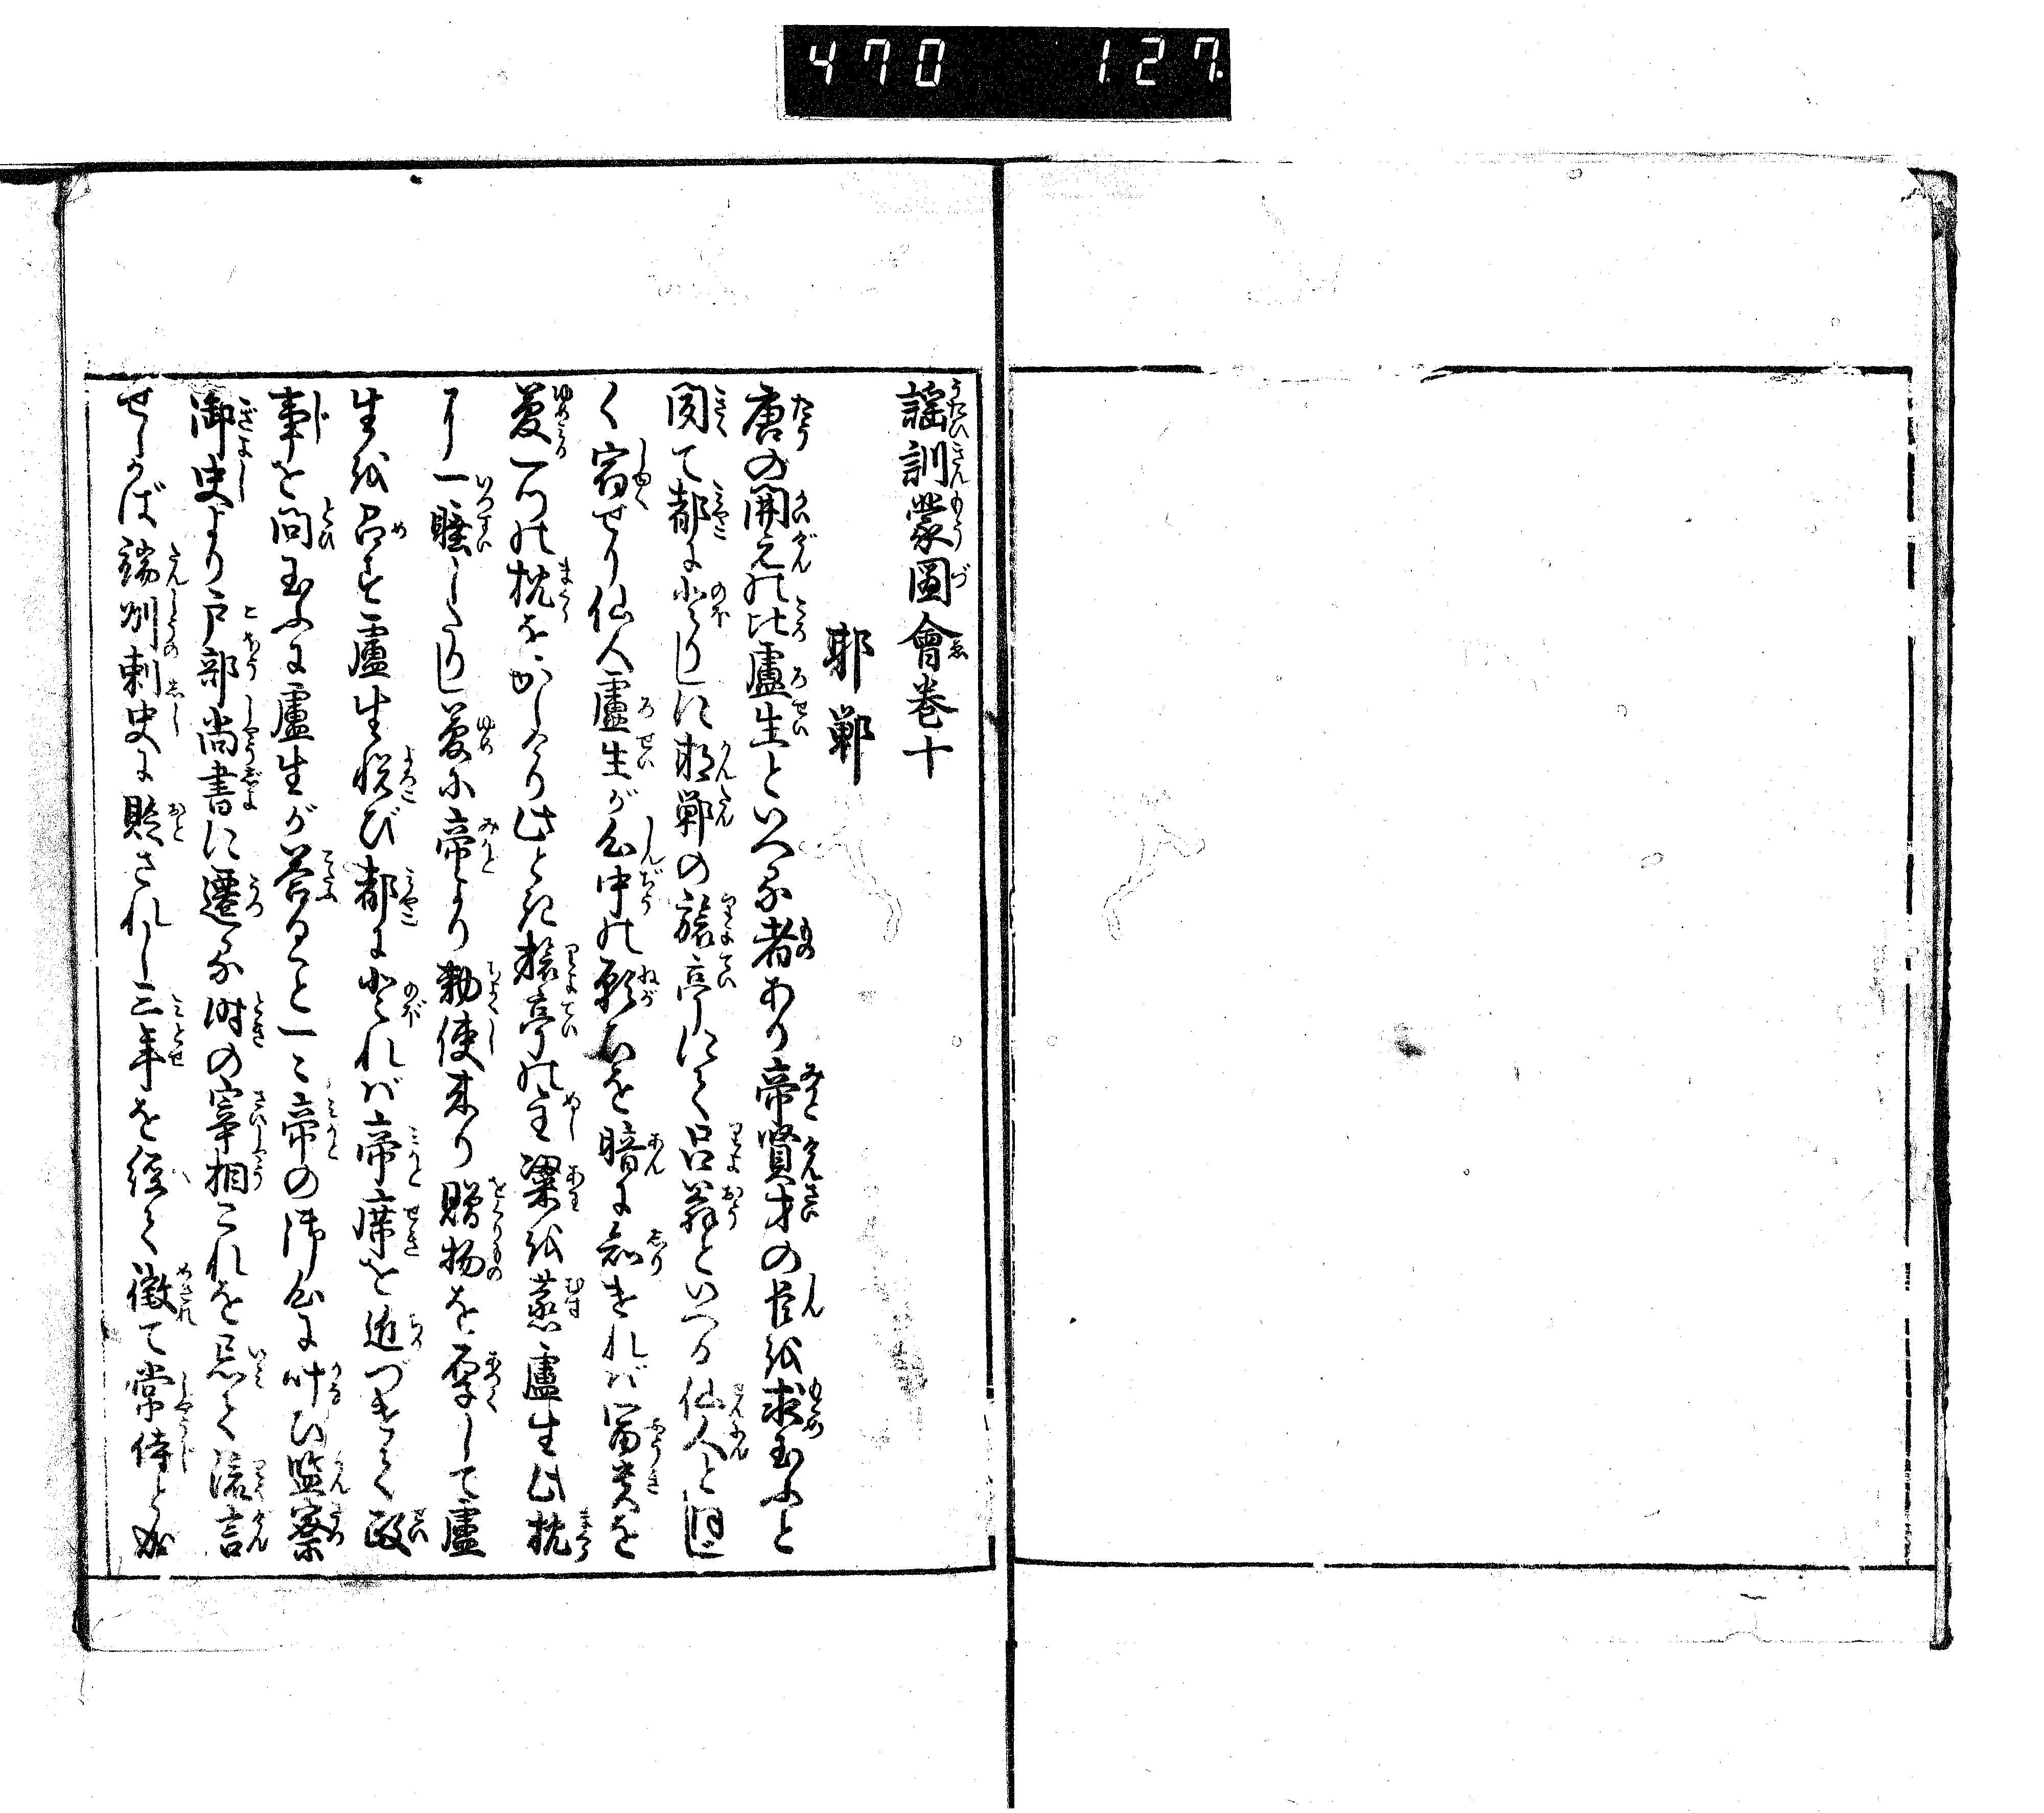 470 127.
謡訓蒙圖會巻十
邯鄲
唐の開元の比盧生といへる者あり帝賢才の臣を求玉ふと
聞て都に登りしに邯鄲の旅亭にて呂翁といへる仙人と同じ
く宿せり仙人盧生が心中の願ひを暗に知きれば冨貴を
夢一つの枕をかしけり此とき旅亭の主粱を蒸盧生此枕
に一睡したりし夢に帝より勅使来り贈物を厚して盧
生を召す盧生悦び都に登れば帝席を近づけて政
事を問玉ふに盧生が答ること一々帝の御心に叶ひ監察
御史より戸部尚書に遷る時の宰相これを忌て流言
せしかば端州刺史に貶されし三年を経て徴て常侍と成